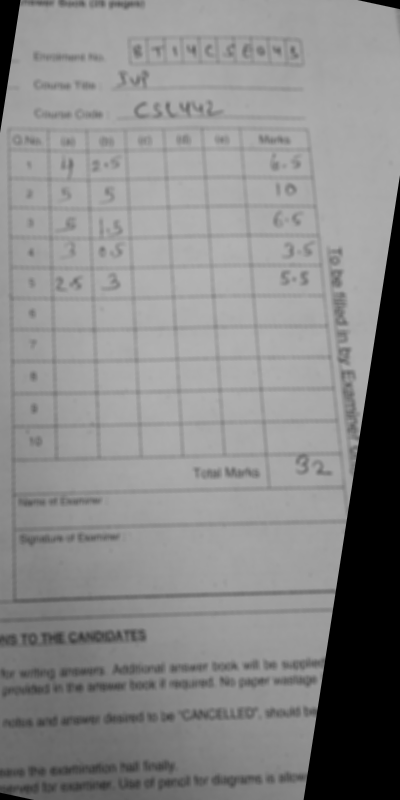 Answer Book (28 pages)
Enrolment No. BT14CSE043
Course Title : SVP
Course Code : CSL442
Q.No. (a) (b) (c) (d) (e) Marks
1 4 2.5 6.5
2 5 5 10
3 5 1.5 6.5
4 3 0.5 3.5
5 2.5 3 5.5
6
7
8
9
10
Total Marks 32
To be filled in by Examiner
Name of Examiner :
Signature of Examiner :
NS TO THE CANDIDATES
for writing answers. Additional answer book will be supplied
provided in the answer book if required. No paper wastage
notus and answer desired to be "CANCELLED", should be
eave the examination hall finally.
served for examiner. Use of pencil for diagrams is allow